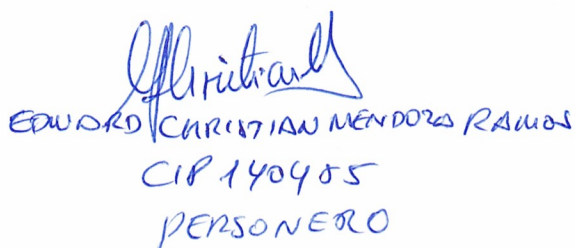 EDWARD CHRISTIAN MENDOZA RAMOS
CIP 140485
PERSONERO